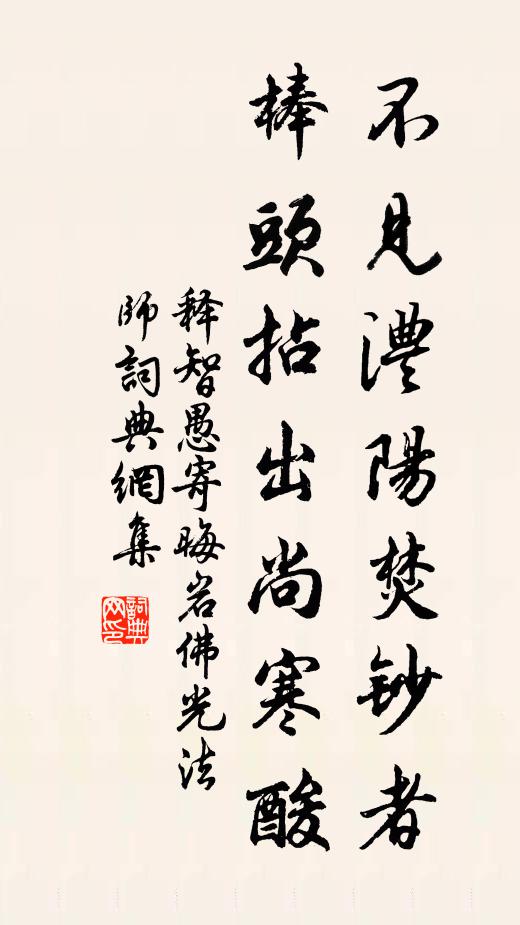 不見澧陽焚鈔者
棒頭拈出尚寒酸
释智愚寄晦岩佛光法
師詞典網集
詞典
网印